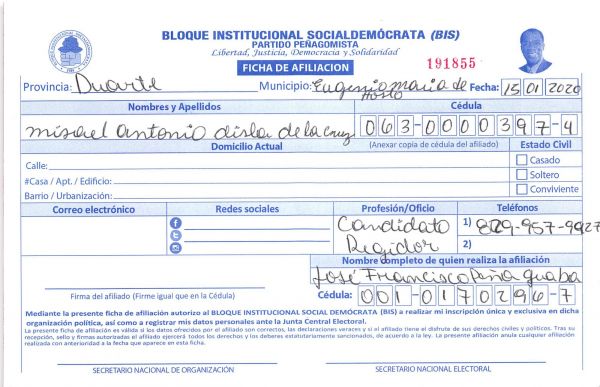 BLOQUE INSTITUCIONAL SOCIALDEMÓCRATA (BIS)
PARTIDO PEÑAGOMISTA
Libertad, Justicia, Democracia y Solidaridad
FICHA DE AFILIACION
191855
Provincia: Duarte Municipio: Eugenio maria de Hosto Fecha: 15 01 2020
Nombres y Apellidos Cédula
misael antonio disla de la cruz 063-0000397-4
Domicilio Actual (Anexar copia de cédula del afiliado) Estado Civil
Calle: Casado
#Casa / Apt. / Edificio: Soltero
Barrio / Urbanización: Conviviente
Correo electrónico Redes sociales Profesión/Oficio Teléfonos
Candidato 1) 829-957-9927
Regidor 2)
Nombre completo de quien realiza la afiliación
José Francisco Peña guaba
Firma del afiliado (Firme igual que en la Cédula) Cédula: 001-0170296-7
Mediante la presente ficha de afiliación autorizo al BLOQUE INSTITUCIONAL SOCIAL DEMÓCRATA (BIS) a realizar mi inscripción única y exclusiva en dicha
organización política, así como a registrar mis datos personales ante la Junta Central Electoral.
La presente ficha de afiliación es válida si los datos ofrecidos por el afiliado son correctos, las declaraciones veraces y si el afiliado tiene el disfrute de sus derechos civiles y politicos. Tras su
recepción, sello y firmas autorizadas el afiliado ejercerá todos los derechos y los deberes estatutariamente sancionados, de acuerdo a la ley. La presente afiliación anula cualquier afiliación
realizada con anterioridad a la fecha que aparece en esta ficha.
SECRETARIO NACIONAL DE ORGANIZACIÓN SECRETARIO NACIONAL ELECTORAL